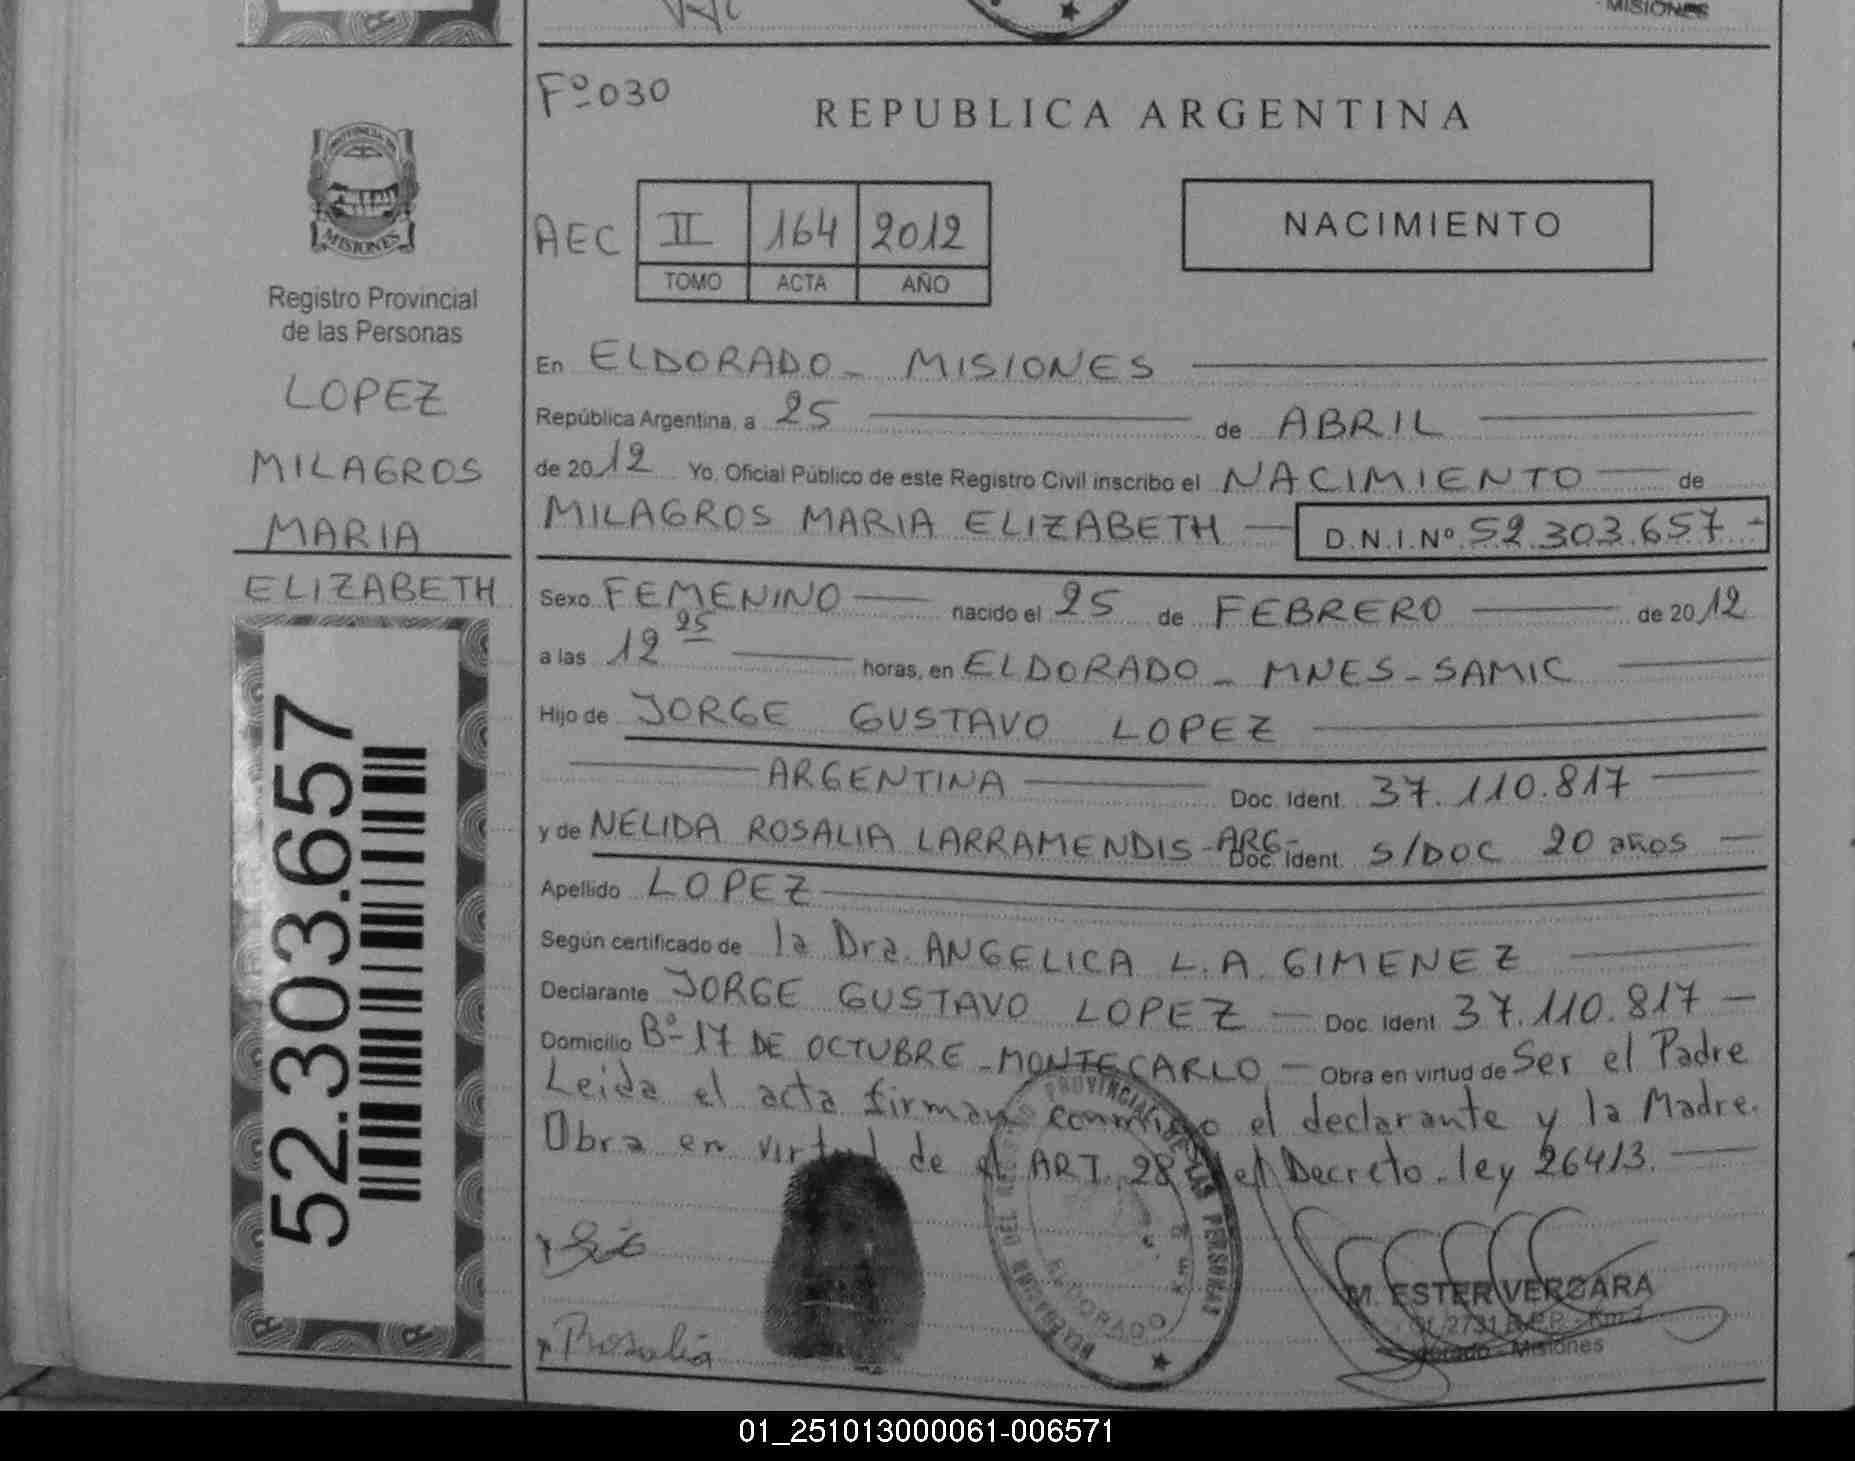 MISIONES
Fº 030
REPUBLICA ARGENTINA
PROVINCIA DE
MISIONES
Registro Provincial
de las Personas
LOPEZ
MILAGROS
MARIA
ELIZABETH
52.303.657
AEC II 164 2012
TOMO ACTA AÑO
NACIMIENTO
En ELDORADO - MISIONES
República Argentina, a 25 de ABRIL
de 2012 Yo, Oficial Público de este Registro Civil inscribo el NACIMIENTO de
MILAGROS MARIA ELIZABETH D.N.I.Nº 52.303.657 -
Sexo FEMENINO nacido el 25 de FEBRERO de 2012
a las 12 25 horas, en ELDORADO - MNES - SAMIC
Hijo de JORGE GUSTAVO LOPEZ
ARGENTINA Doc. Ident. 37.110.817
y de NELIDA ROSALIA LARRAMENDIS - ARG- Doc. Ident. S/DOC 20 años
Apellido LOPEZ
Según certificado de la Dra. ANGELICA L. A. GIMENEZ
Declarante JORGE GUSTAVO LOPEZ - Doc. Ident 37.110.817 -
Domicilio Bº 17 DE OCTUBRE - MONTECARLO - Obra en virtud de Ser el Padre
Leida el acta firman conmigo el declarante y la Madre.
Obra en virtud de el ART. 28 del Decreto - ley 26413.
PROVINCIAL DE LAS PERSONAS
ELDORADO
Rosalia
M. ESTER VERGARA
2731 R.P.P. - Km 2
Misiones
01_251013000061-006571